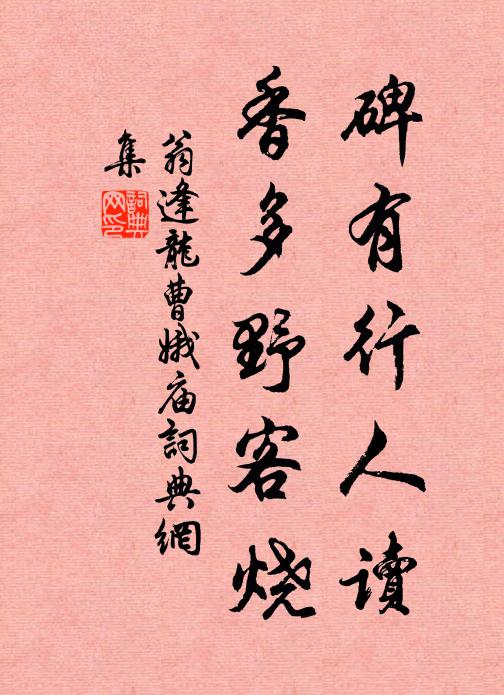 碑有行人讀
香多野客烧
翁逢龍曹娥庙詞典網
集
詞典
网印